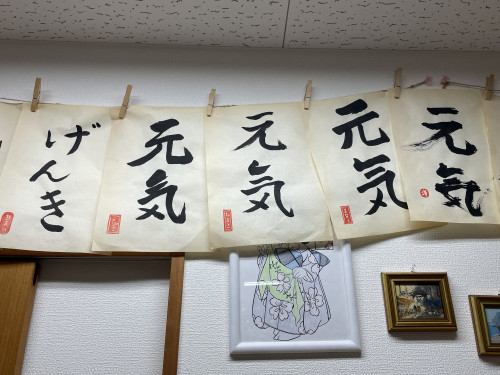 げんき
元気
元気
元気
元気